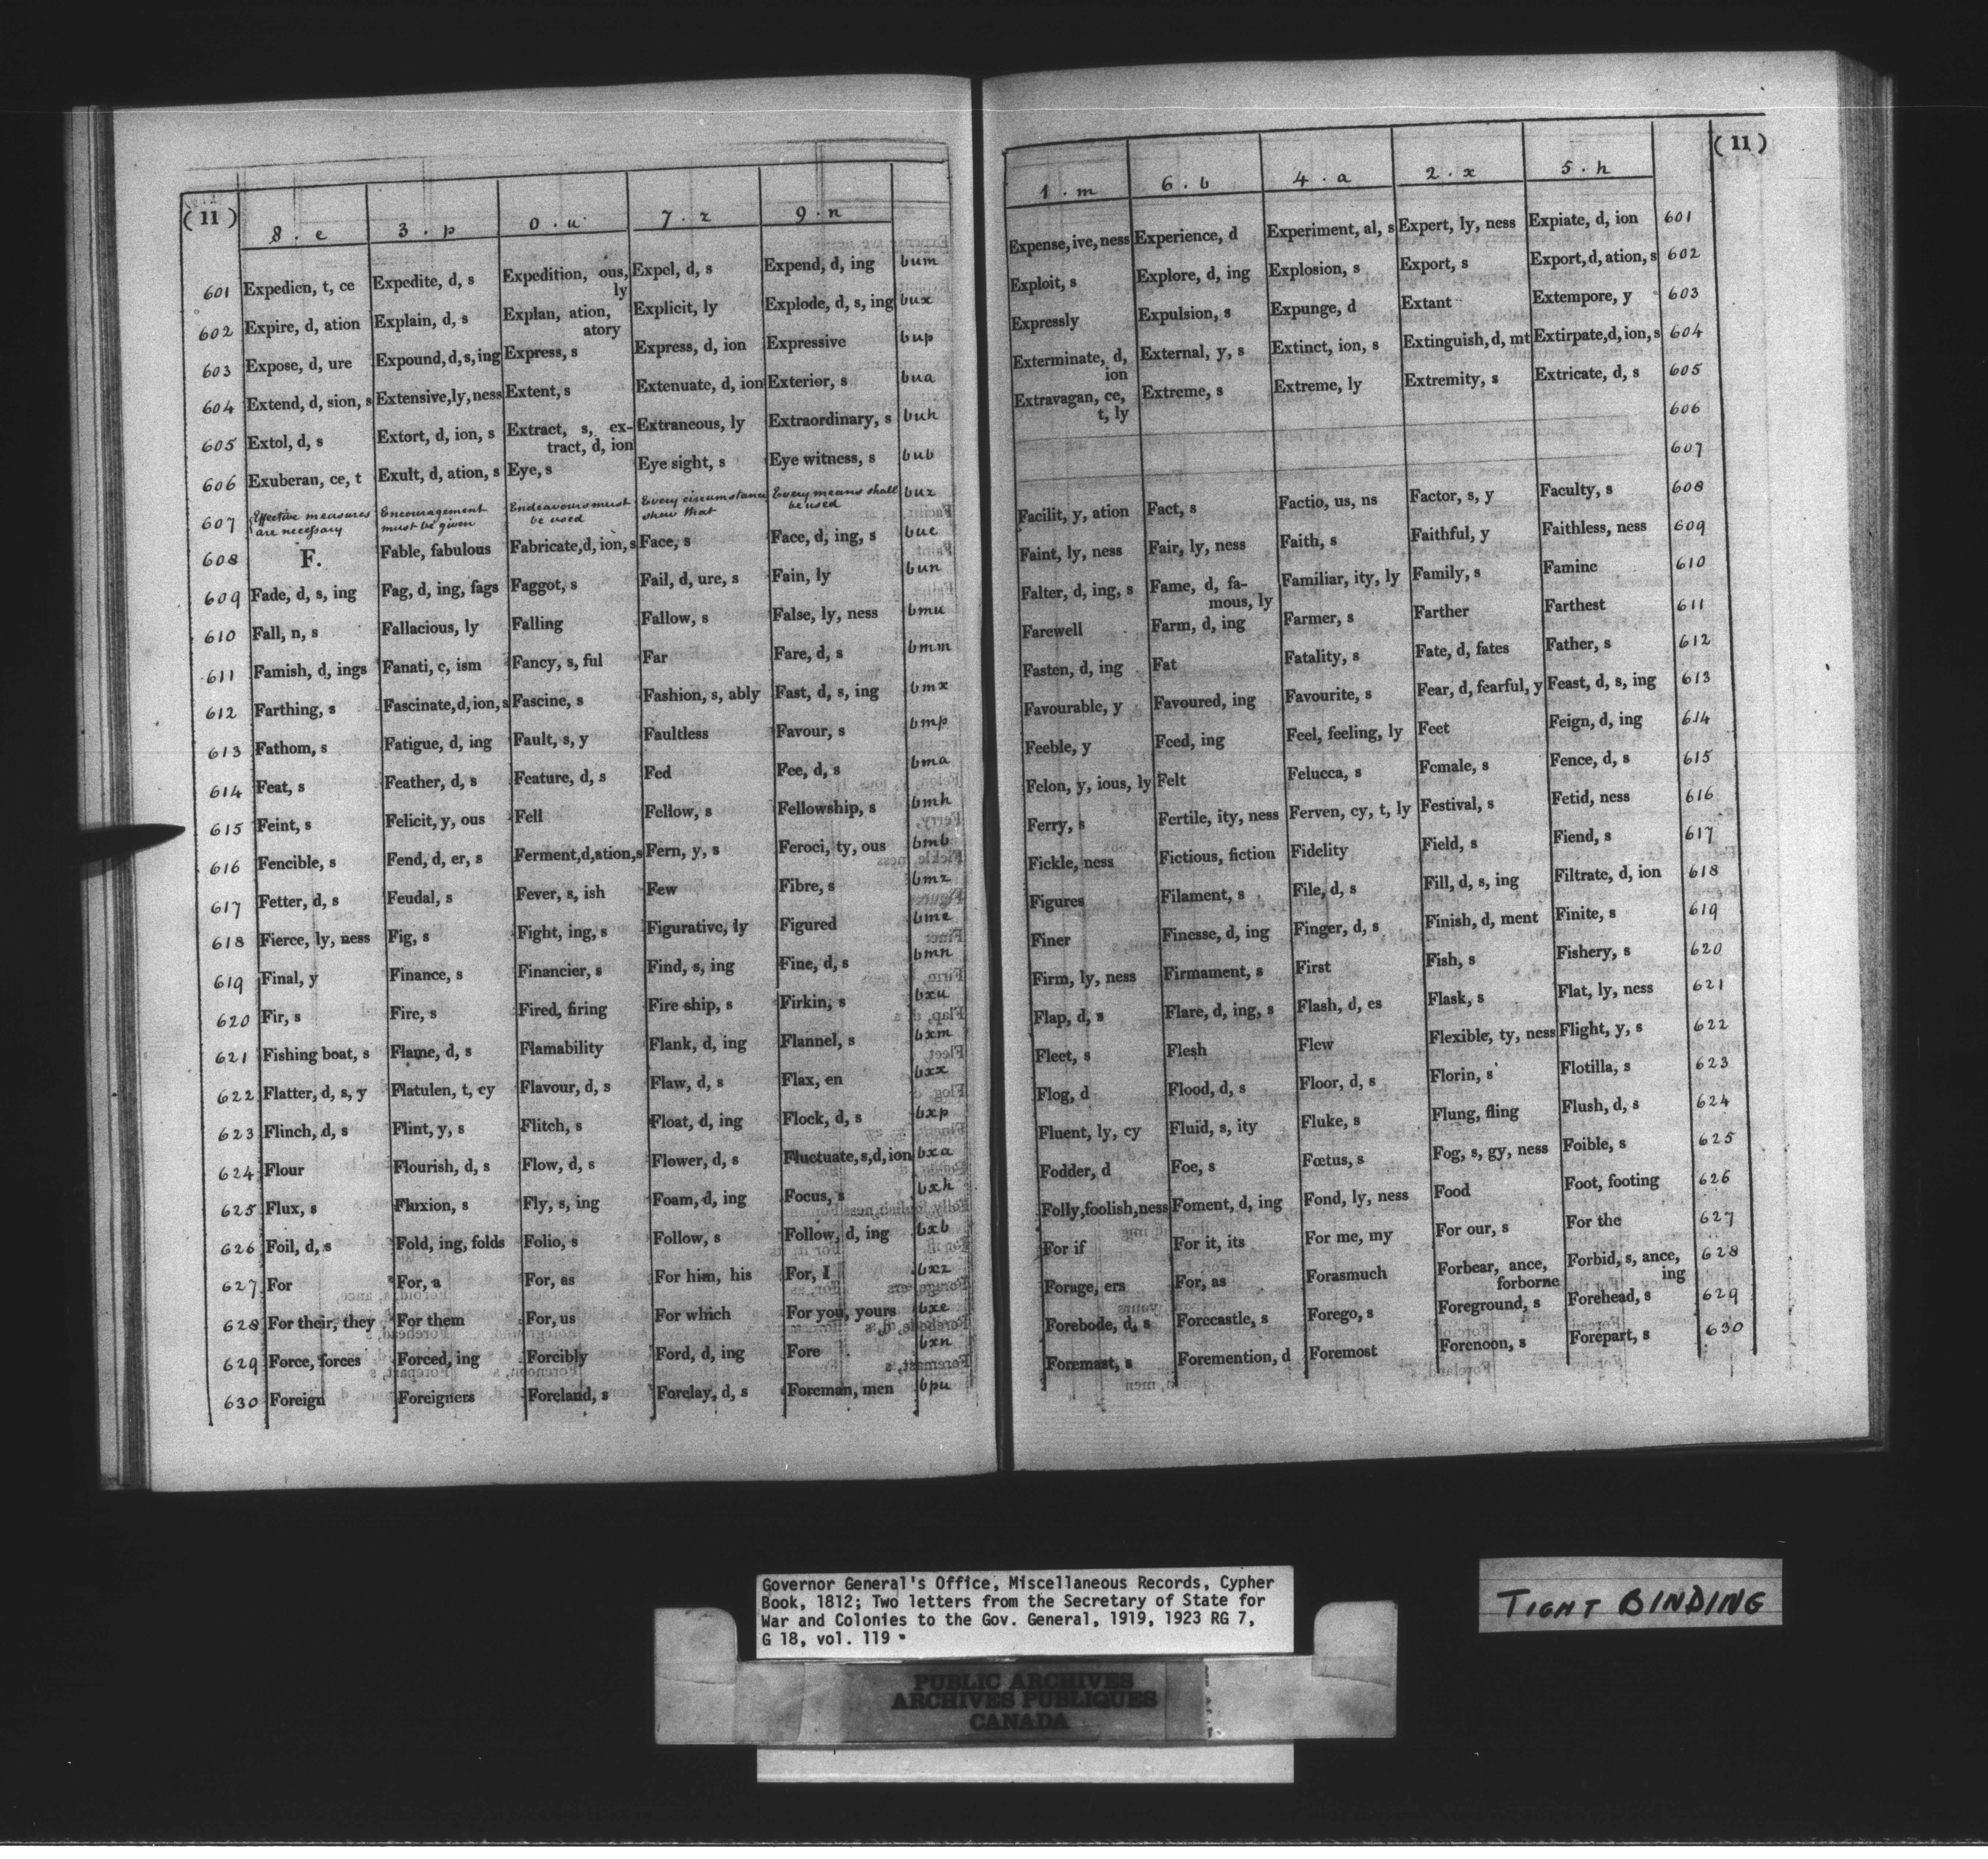 ( 11 ) 8 . e 3 . p 0 . u 7 . z 9 . n
601 Expedien, t, ce Expedite, d, s Expedition, ous, ly Expel, d, s Expend, d, ing bum
602 Expire, d, ation Explain, d, s Explan, ation, atory Explicit, ly Explode, d, s, ing bux
603 Expose, d, ure Expound, d, s, ing Express, s Express, d, ion Expressive bup
604 Extend, d, sion, s Extensive, ly, ness Extent, s Extenuate, d, ion Exterior, s bua
605 Extol, d, s Extort, d, ion, s Extract, s, ex- tract, d, ion Extraneous, ly Extraordinary, s buh
606 Exuberan, ce, t Exult, d, ation, s Eye, s Eye sight, s Eye witness, s bub
607 Effective measures are necessary Encouragement must be given Endeavours must be used Every circumstance shew that Every means shall be used buz
608 F. Fable, fabulous Fabricate, d, ion, s Face, s Face, d, ing, s bue
609 Fade, d, s, ing Fag, d, ing, fags Faggot, s Fail, d, ure, s Fain, ly bun
610 Fall, n, s Fallacious, ly Falling Fallow, s False, ly, ness bmu
611 Famish, d, ings Fanati, c, ism Fancy, s, ful Far Fare, d, s bmm
612 Farthing, s Fascinate, d, ion, s Fascine, s Fashion, s, ably Fast, d, s, ing bmx
613 Fathom, s Fatigue, d, ing Fault, s, y Faultless Favour, s bmp
614 Feat, s Feather, d, s Feature, d, s Fed Fee, d, s bma
615 Feint, s Felicit, y, ous Fell Fellow, s Fellowship, s bmh
616 Fencible, s Fend, d, er, s Ferment, d, ation, s Fern, y, s Feroci, ty, ous bmb
617 Fetter, d, s Feudal, s Fever, s, ish Few Fibre, s bmz
618 Fierce, ly, ness Fig, s Fight, ing, s Figurative, ly Figured bme
619 Final, y Finance, s Financier, s Find, s, ing Fine, d, s bmn
620 Fir, s Fire, s Fired, firing Fire ship, s Firkin, s bxu
621 Fishing boat, s Flame, d, s Flamability Flank, d, ing Flannel, s bxm
622 Flatter, d, s, y Flatulen, t, cy Flavour, d, s Flaw, d, s Flax, en bxx
623 Flinch, d, s Flint, y, s Flitch, s Float, d, ing Flock, d, s bxp
624 Flour Flourish, d, s Flow, d, s Flower, d, s Fluctuate, s, d, ion bxa
625 Flux, s Fluxion, s Fly, s, ing Foam, d, ing Focus, s bxh
626 Foil, d, s Fold, ing, folds Folio, s Follow, s Follow, d, ing bxb
627 For For, a For, as For him, his For, I bxz
628 For their, they For them For, us For which For you, yours bxe
629 Force, forces Forced, ing Forcibly Ford, d, ing Fore bxn
630 Foreign Foreigners Foreland, s Forelay, d, s Foreman, men bpu
1 . m 6 . b 4 . a 2 . x 5 . h ( 11 )
Expense, ive, ness Experience, d Experiment, al, s Expert, ly, ness Expiate, d, ion 601
Exploit, s Explore, d, ing Explosion, s Export, s Export, d, ation, s 602
Expressly Expulsion, s Expunge, d Extant Extempore, y 603
Exterminate, d, ion External, y, s Extinct, ion, s Extinguish, d, mt Extirpate, d, ion, s 604
Extravagan, ce, t, ly Extreme, s Extreme, ly Extremity, s Extricate, d, s 605
606
607
Facilit, y, ation Fact, s Factio, us, ns Factor, s, y Faculty, s 608
Faint, ly, ness Fair, ly, ness Faith, s Faithful, y Faithless, ness 609
Falter, d, ing, s Fame, d, fa- mous, ly Familiar, ity, ly Family, s Famine 610
Farewell Farm, d, ing Farmer, s Farther Farthest 611
Fasten, d, ing Fat Fatality, s Fate, d, fates Father, s 612
Favourable, y Favoured, ing Favourite, s Fear, d, fearful, y Feast, d, s, ing 613
Feeble, y Feed, ing Feel, feeling, ly Feet Feign, d, ing 614
Felon, y, ious, ly Felt Felucca, s Female, s Fence, d, s 615
Ferry, s Fertile, ity, ness Ferven, cy, t, ly Festival, s Fetid, ness 616
Fickle, ness Fictious, fiction Fidelity Field, s Fiend, s 617
Figures Filament, s File, d, s Fill, d, s, ing Filtrate, d, ion 618
Finer Finesse, d, ing Finger, d, s Finish, d, ment Finite, s 619
Firm, ly, ness Firmament, s First Fish, s Fishery, s 620
Flap, d, s Flare, d, ing, s Flash, d, es Flask, s Flat, ly, ness 621
Fleet, s Flesh Flew Flexible, ty, ness Flight, y, s 622
Flog, d Flood, d, s Floor, d, s Florin, s Flotilla, s 623
Fluent, ly, cy Fluid, s, ity Fluke, s Flung, fling Flush, d, s 624
Fodder, d Foe, s Fœtus, s Fog, s, gy, ness Foible, s 625
Folly, foolish, ness Foment, d, ing Fond, ly, ness Food Foot, footing 626
For if For it, its For me, my For our, s For the 627
Forage, ers For, as Forasmuch Forbear, ance, forborne Forbid, s, ance, ing 628
Forebode, d, s Forecastle, s Forego, s Foreground, s Forehead, s 629
Foremast, s Foremention, d Foremost Forenoon, s Forepart, s 630
Governor General's Office, Miscellaneous Records, Cypher
Book, 1812; Two letters from the Secretary of State for
War and Colonies to the Gov. General, 1919, 1923 RG 7,
G 18, vol. 119
PUBLIC ARCHIVES
ARCHIVES PUBLIQUES
CANADA
TIGHT BINDING